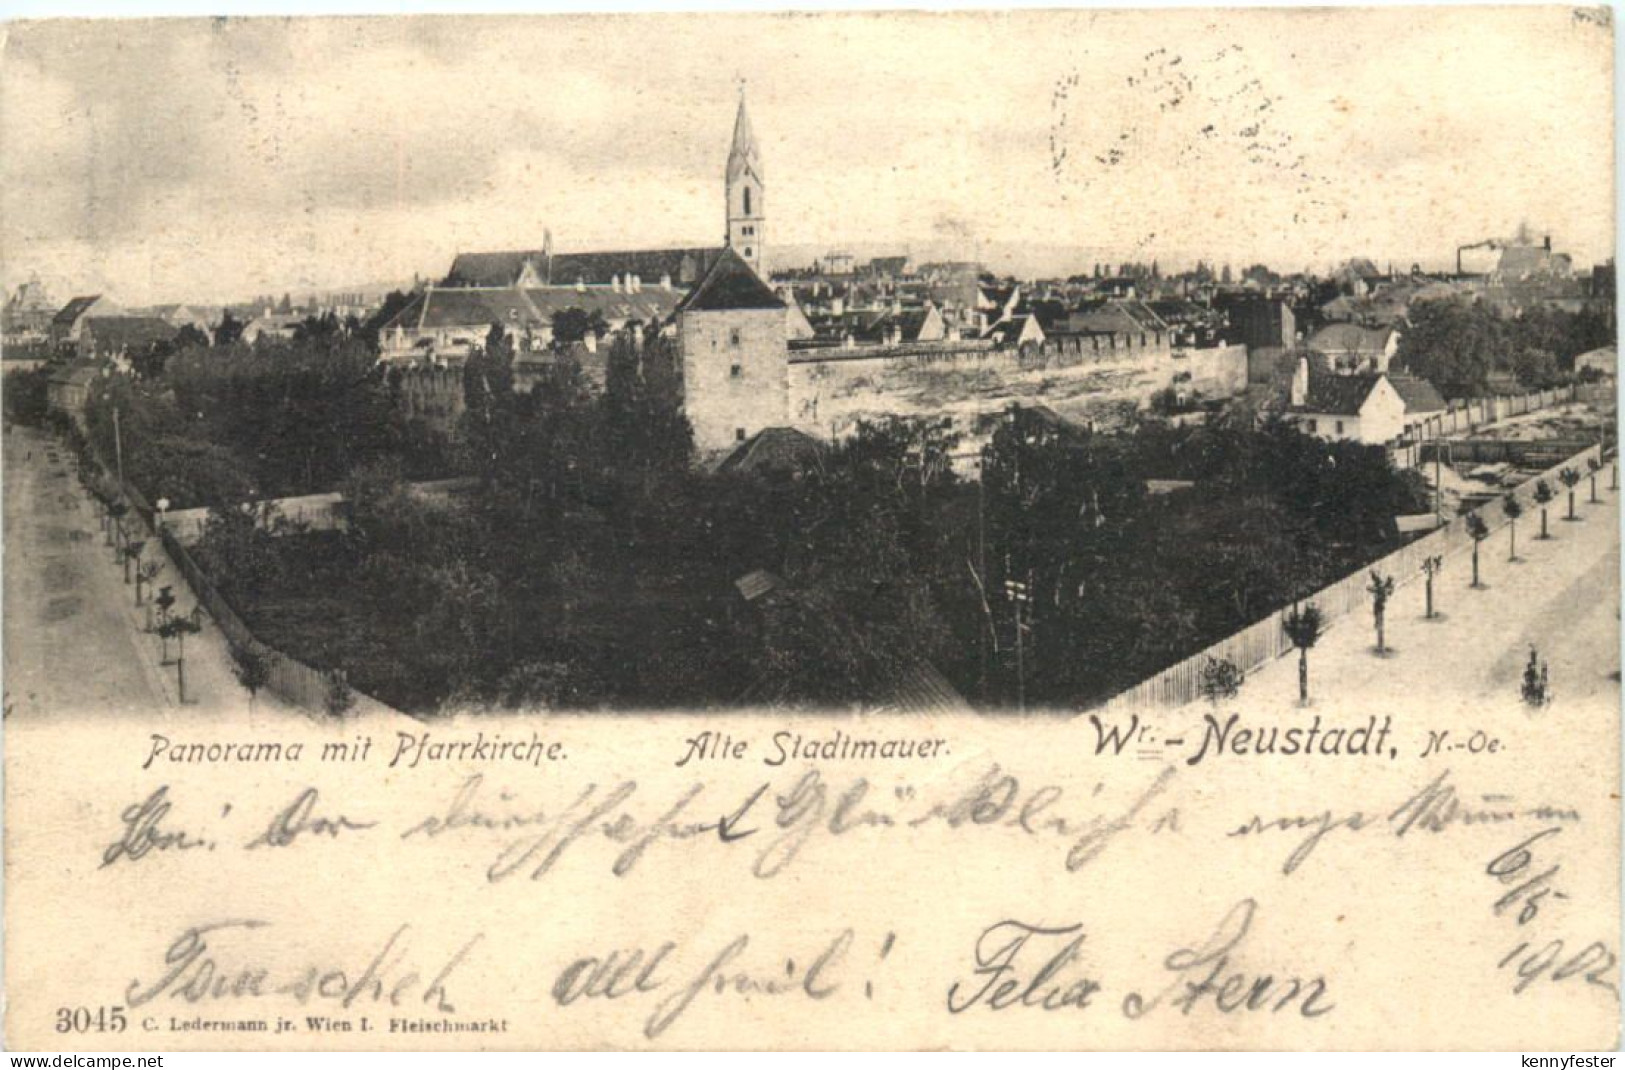 Panorama mit Pfarrkirche. Alte Stadtmauer. Wr.-Neustadt, N.-Oe.
Bei der durchfahrt Glücklich ange
6/5
1902
All heil! Felix Stern
3045 C. Ledermann jr. Wien I. Fleischmarkt
delcampe.net kennyfester